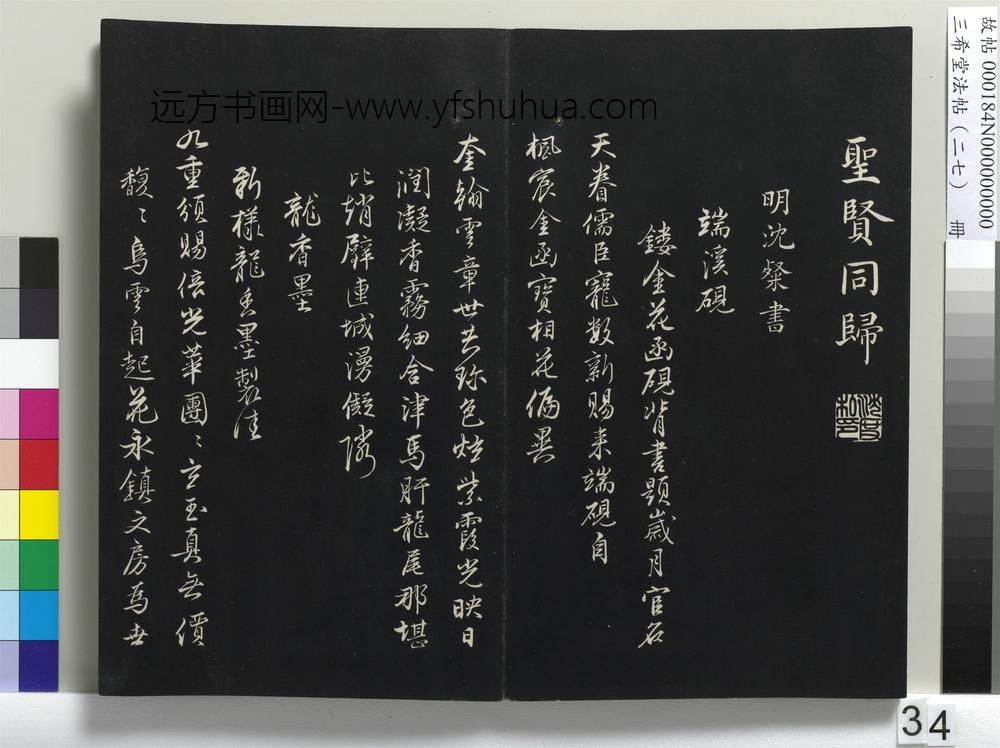 聖賢同歸
明沈粲書
端溪硯
鏤金花函硯背書題歲月官名
天眷儒臣寵数新賜来端硯自
楓宸金函寶相花偏異
奎翰雲章世共珎色炫紫霞光映日
潤凝香霧細含津馬肝龍尾那堪
比趙璧連城漫儗隣
龍香墨
新樣龍香墨製佳
九重頒賜倍光華團〻立玉真無價
馥〻烏雲自起花永鎮文房為世
远方书画网-www.yfshuhua.com
故帖 000184N000000000
三希堂法帖(二七) 冊
34